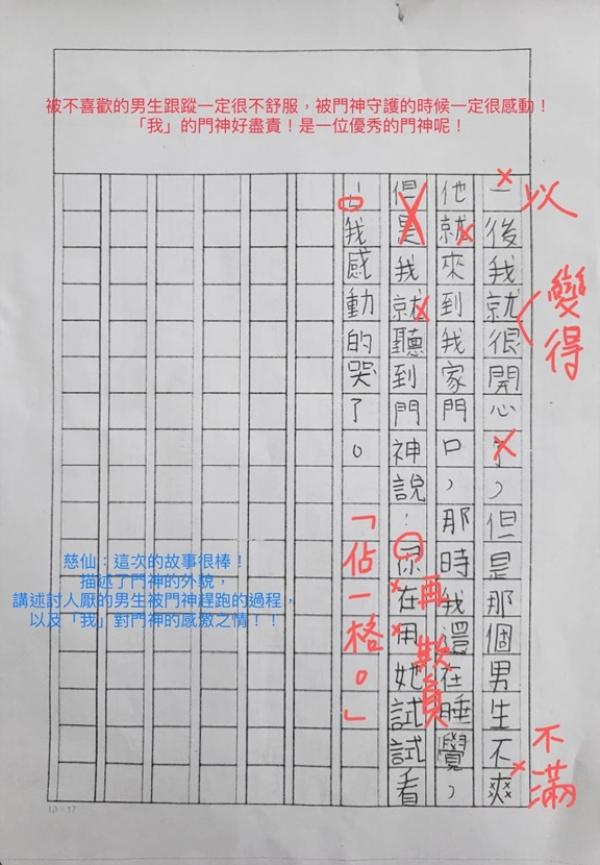 被不喜歡的男生跟蹤一定很不舒服，被門神守護的時候一定很感動！
「我」的門神好盡責！是一位優秀的門神呢！
一後我就很開心了，但是那個男生不爽
以
變得
不滿
他就來到我家門口，那時我還在睡覺，
但是我就聽到門神說：你在用她試試看
再
欺負
我感動的哭了。
「佔一格。」
慈仙：這次的故事很棒！
描述了門神的外貌，
講述討人厭的男生被門神趕跑的過程，
以及「我」對門神的感激之情！！